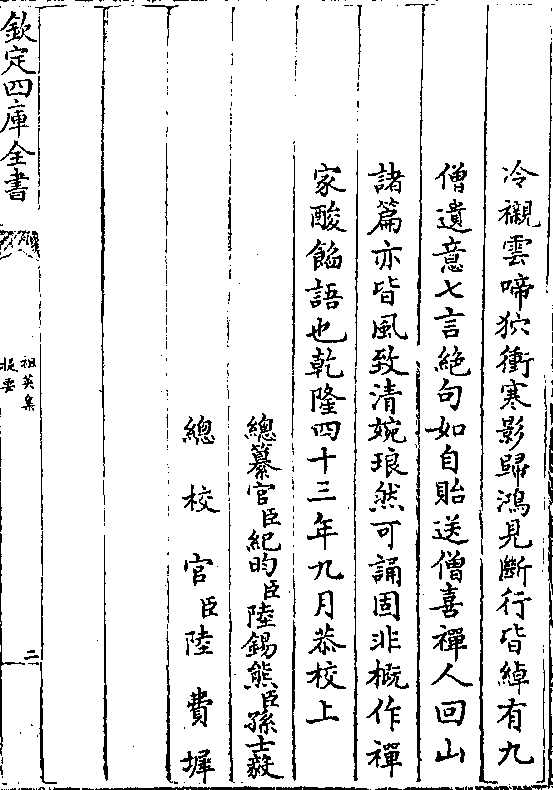 冷襯雲啼狖衝寒影歸鴻見斷行皆綽有九
僧遺意七言絶句如自貽送僧喜禪人回山
諸篇亦皆風致清婉琅然可誦固非概作禪
家酸餡語也乾隆四十三年九月恭校上
總纂官臣紀昀臣陸錫熊臣孫士毅
總校官臣陸費墀
欽定四庫全書
祖英集
提要
二